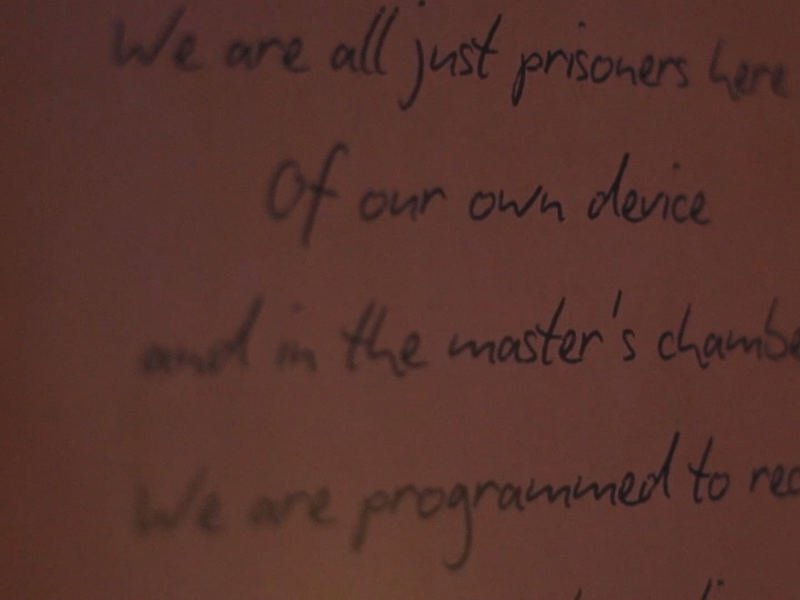 We are all just prisoners here
Of our own device
and in the master's chambe
We are programmed to rec